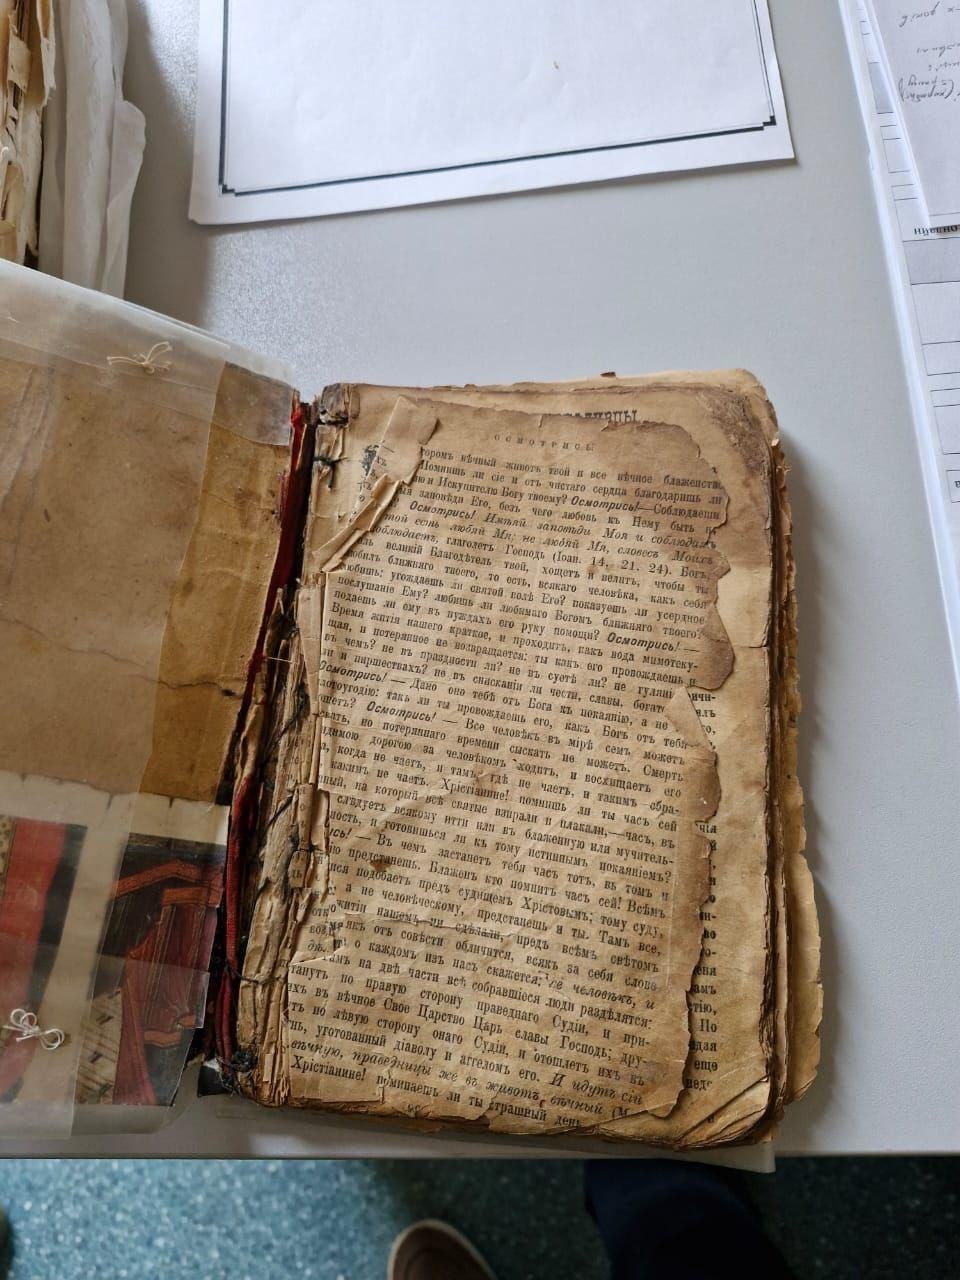 ОСМОТРИСЬ
тором вѣчный животъ твой и все вѣчное блаженство
Помнишь ли сіе и отъ чистаго сердца благодаришь ли
ю и Искупителю Богу твоему? Осмотрись!—Соблюдаеши
я заповѣди Его, безъ чего любовь къ Нему быть н
? Осмотрись! Имѣяй заповѣди Моя и соблюдаяй
той есть любяй Мя; не любяй Мя, словесъ Моихъ
соблюдаетъ, глаголетъ Господь (Іоан. 14, 21. 24). Богъ,
ль великій Благодѣтель твой, хощетъ и велитъ, чтобы ты
юбилъ ближняго твоего, то есть, всякаго человѣка, какъ себя
любишь; угождаешь ли святой волѣ Его? показуешь ли усердное
послушаніе Ему? любишь ли любимаго Богомъ ближняго твоего?
подаешь ли ему въ нуждахъ его руку помощи? Осмотрись! —
Время житія нашего краткое, и проходитъ, какъ вода мимотеку-
щая, и потерянное не возвращается: ты какъ его провождаешь и
въ чемъ? не въ праздности ли? не въ суетѣ ли? не гуляні
ли и пиршествахъ? не въ снисканіи ли чести, славы, богат
Осмотрись! — Дано оно тебѣ отъ Бога къ покаянію, а не
лотоугодію: такъ ли ты провождаешь его, какъ Богъ отъ тебя
щетъ? Осмотрись! — Все человѣкъ въ мірѣ семъ можетъ
кать, но потеряннаго времени сыскать не можетъ. Смерть
идимою дорогою за человѣкомъ ходитъ, и восхищаетъ его
а, когда не чаетъ, и тамъ, гдѣ не чаетъ, и такимъ обра-
какимъ не чаетъ. Хрістіанине! помнишь ли ты часъ сей
ный, на который всѣ святые взирали и плакали,—часъ, въ
слѣдуетъ всякому итти или въ блаженную или мучитель-
ность, и готовишься ли къ тому истиннымъ покаяніемъ?
ись! — Въ чемъ застанетъ тебя часъ тотъ, въ томъ и
ю предстанешь. Блаженъ кто помнитъ часъ сей! Всѣмъ
ися подобаетъ предъ судищемъ Хрістовымъ; тому суду,
а не человѣческому, предстанешь и ты. Тамъ все,
житіи нашемъ ни сдѣлали, предъ всѣмъ свѣтомъ
якъ отъ совѣсти обличится, всякъ за себя слово
о каждомъ изъ насъ скажется: се человѣкъ, и
Тамъ на двѣ части всѣ собравшіеся люди раздѣлятся:
танутъ по правую сторону праведнаго Судіи, и при-
ихъ въ вѣчное Свое Царство Царь славы Господь; дру-
тъ по лѣвую сторону онаго Судіи, и отошлетъ ихъ въ
нь, уготованный діаволу и аггеломъ его. И идутъ сіи
вѣчную, праведницы же въ животъ вѣчный (М
Хрістіанине! помипаешь ли ты страшный день